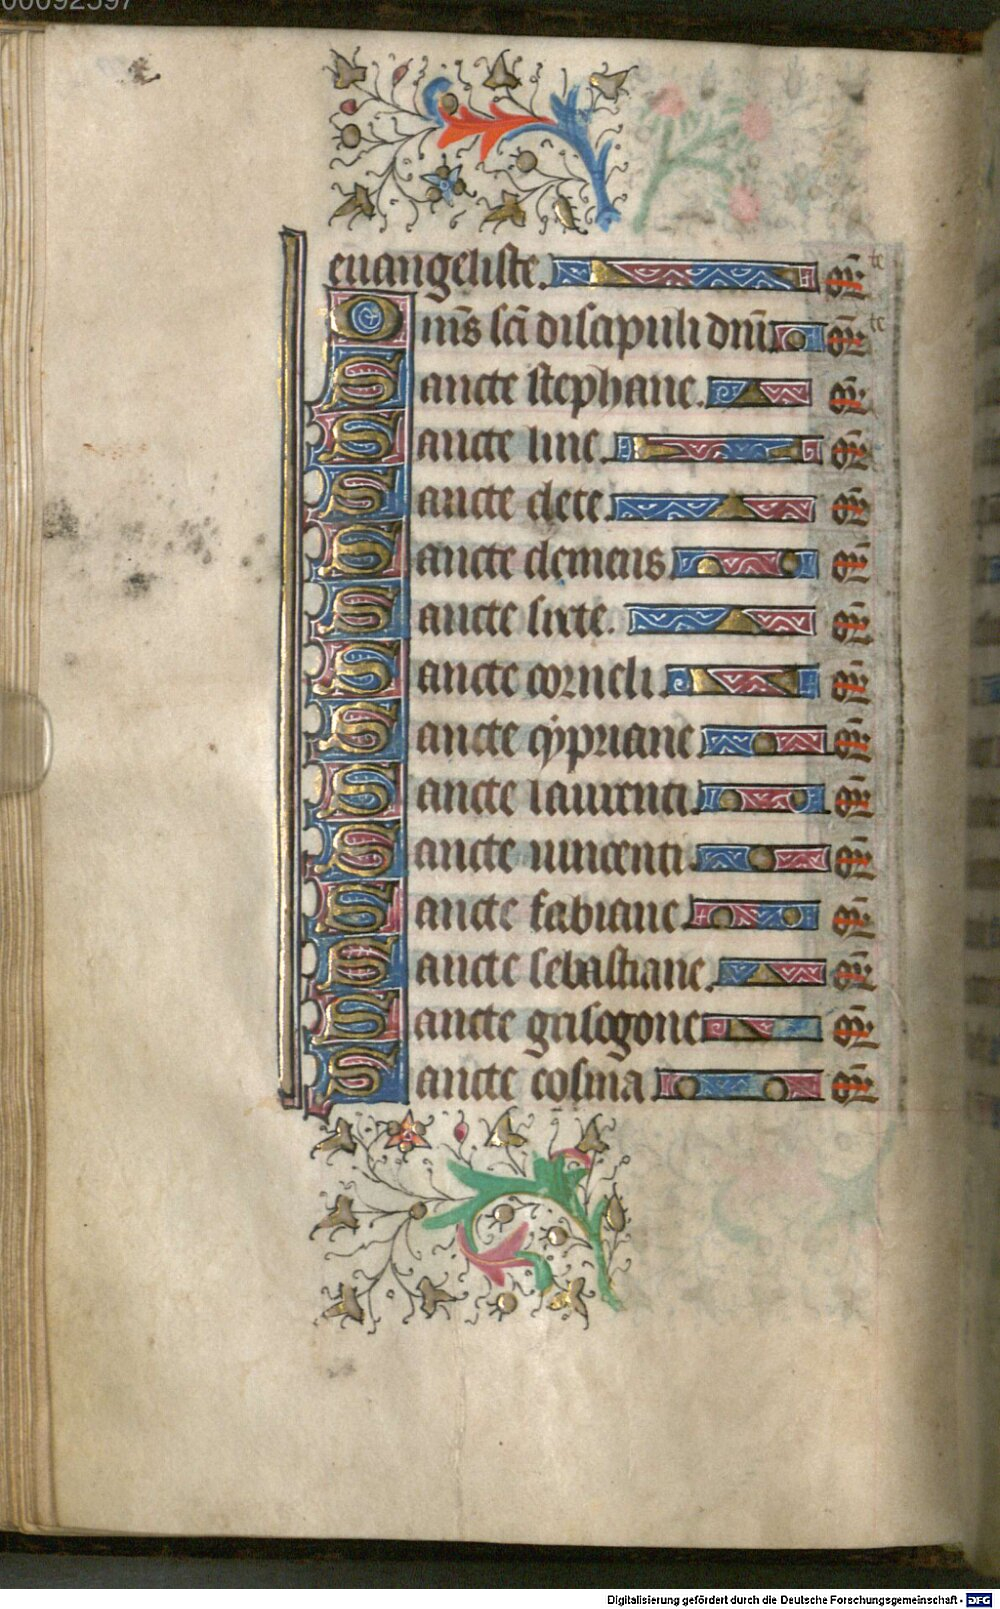 00092597
euangeliste. or̄ te
Om̄s sc̄i discipuli dn̄i or̄ te
Sancte stephane. or̄
Sancte line. or̄
Sancte clete. or̄
Sancte clemens or̄
Sancte sixte. or̄
Sancte corneli. or̄
Sancte cypriane or̄
Sancte laurenti. or̄
Sancte uincenti or̄
Sancte fabiane. or̄
Sancte sebastiane. or̄
Sancte grisogone or̄
Sancte cosma or̄
Digitalisierung gefördert durch die Deutsche Forschungsgemeinschaft - DFG